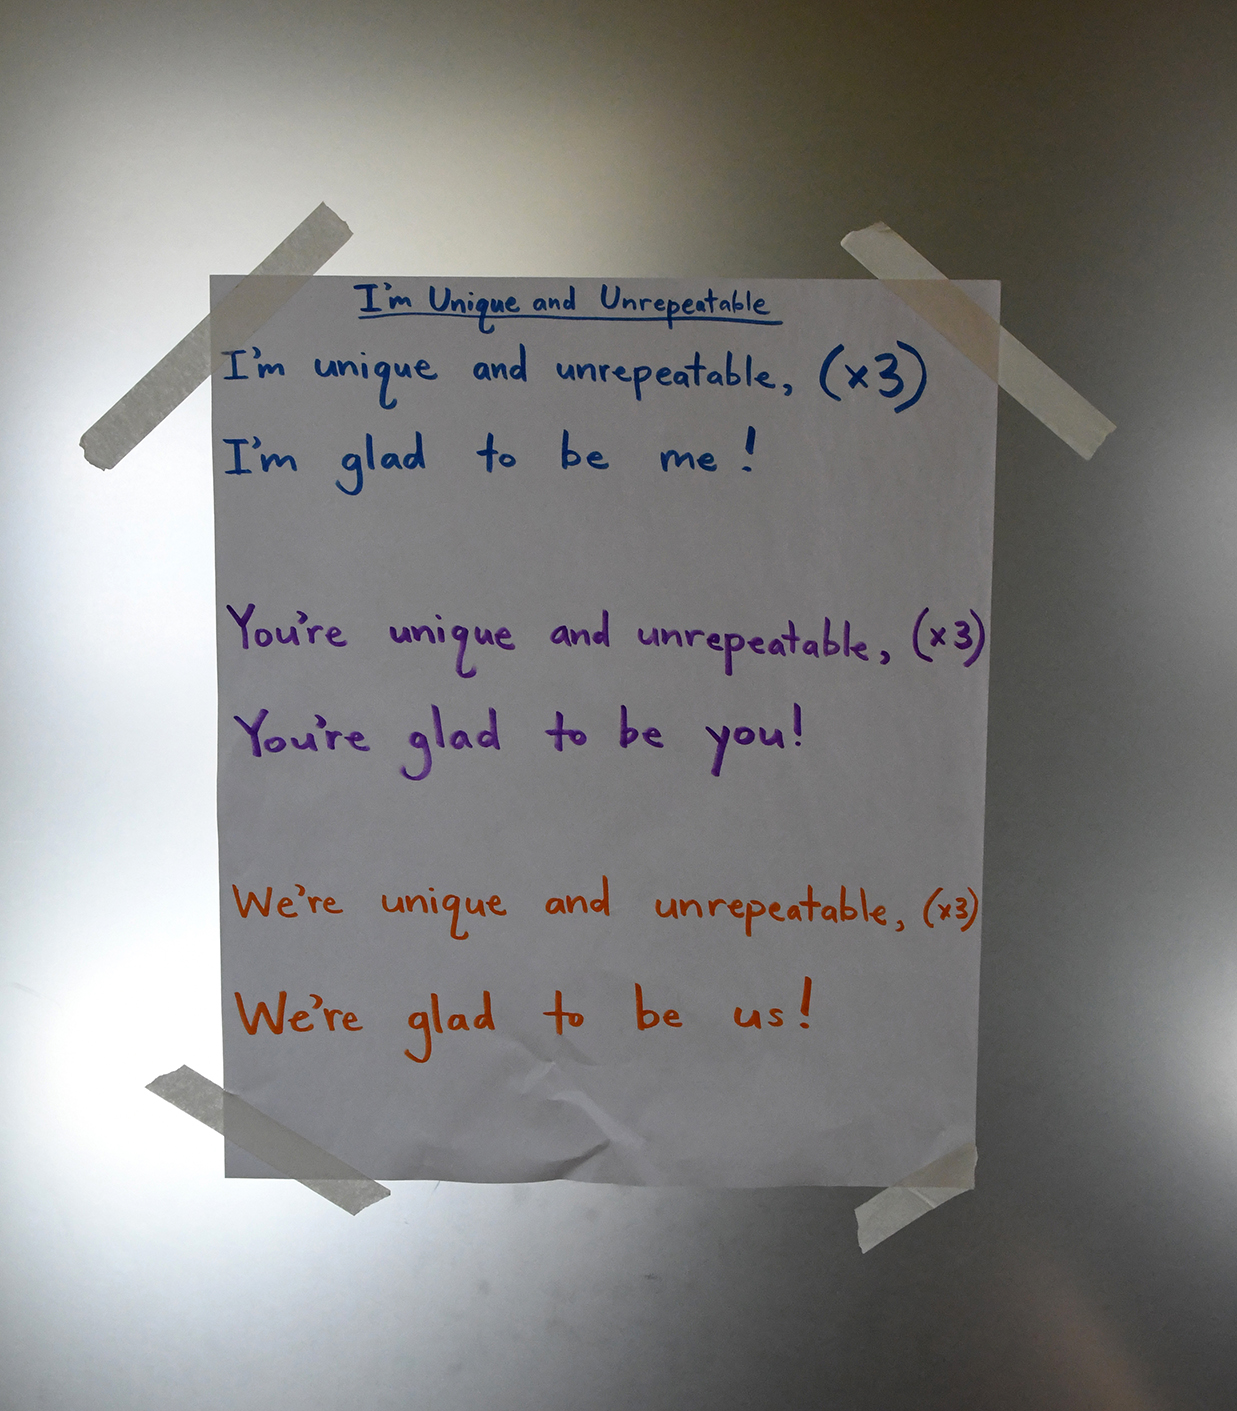 I'm Unique and Unrepeatable
I'm unique and unrepeatable, (x3)
I'm glad to be me!
You're unique and unrepeatable, (x3)
You're glad to be you!
We're unique and unrepeatable, (x3)
We're glad to be us!